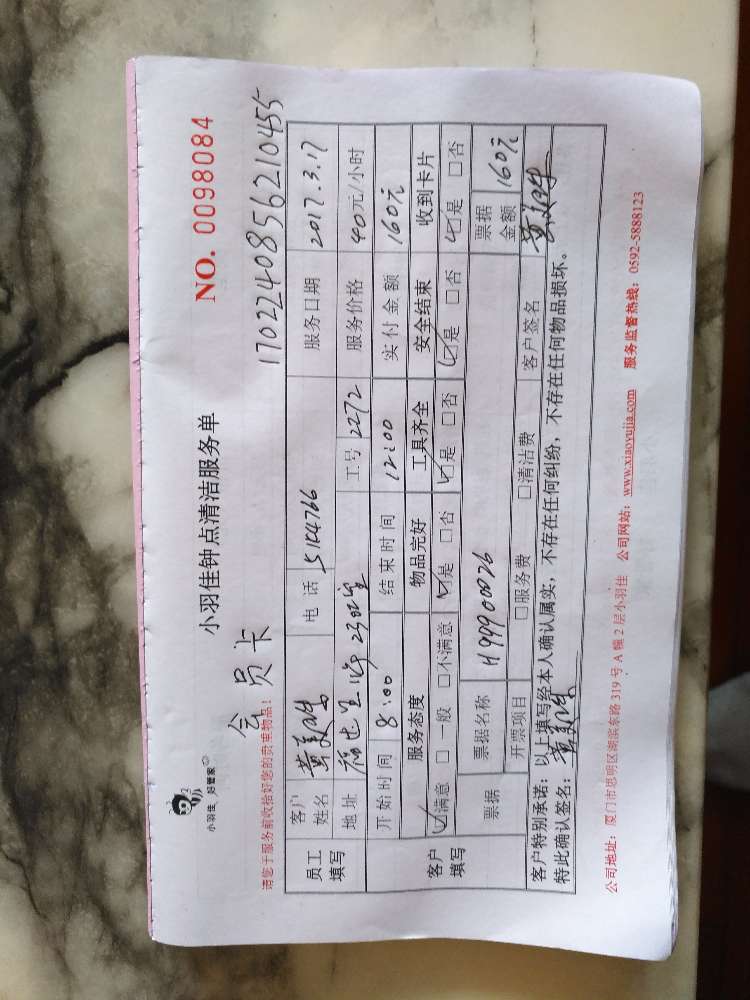 小羽佳 好管家
小羽佳钟点清洁服务单
NO. 0098084
请您于服务前收拾好您的贵重物品!
会员卡
1702240856210455
员工填写
客户姓名 黄 电话 5124766 服务日期 2017.3.17
地址 2302室 工号 2272 服务价格 40元/小时
开始时间 8:00 结束时间 12:00 实付金额 160元
客户填写
服务态度 物品完好 工具齐全 安全结束 收到卡片
☑满意 □一般 □不满意 ☑是 □否 ☑是 □否 ☑是 □否 ☑是 □否
票据 票据名称 H99900026 票据金额 160元
开票项目 □服务费 □清洁费 客户签名 黄
客户特别承诺:以上填写经本人确认属实,不存在任何纠纷,不存在任何物品损坏。
特此确认签名:黄
公司地址:厦门市思明区湖滨东路 319 号 A 幢 2 层小羽佳 公司网站:www.xiaoyujia.com 服务监督热线:0592-5888123